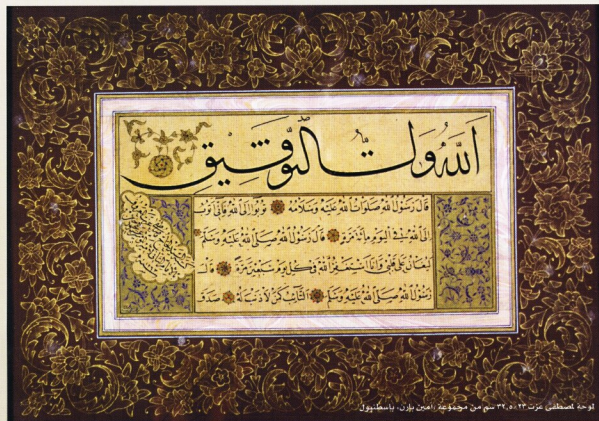 الله ولي التوفيق
قَالَ رَسُولُ اللهِ صَلَوَاتُ اللهِ عَلَيْهِ وَسَلَامُهُ تُوبُوا إِلَى اللهِ فَإِنِّي أَتُوبُ
إِلَى اللهِ فِي الْيَوْمِ مِائَةَ مَرَّةٍ قَالَ رَسُولُ اللهِ صَلَّى اللهُ عَلَيْهِ وَسَلَّمَ
لَيُغَانُ عَلَى قَلْبِي وَأَنَا أَسْتَغْفِرُ اللهَ فِي كُلِّ يَوْمٍ سَبْعِينَ مَرَّةً قَالَ
رَسُولُ اللهِ صَلَّى اللهُ عَلَيْهِ وَسَلَّمَ التَّائِبُ كَمَنْ لَا ذَنْبَ لَهُ صَدَقَ
لوحة لمصطفى عزت ٢٣×٣٢,٥ سم من مجموعة باستنبول